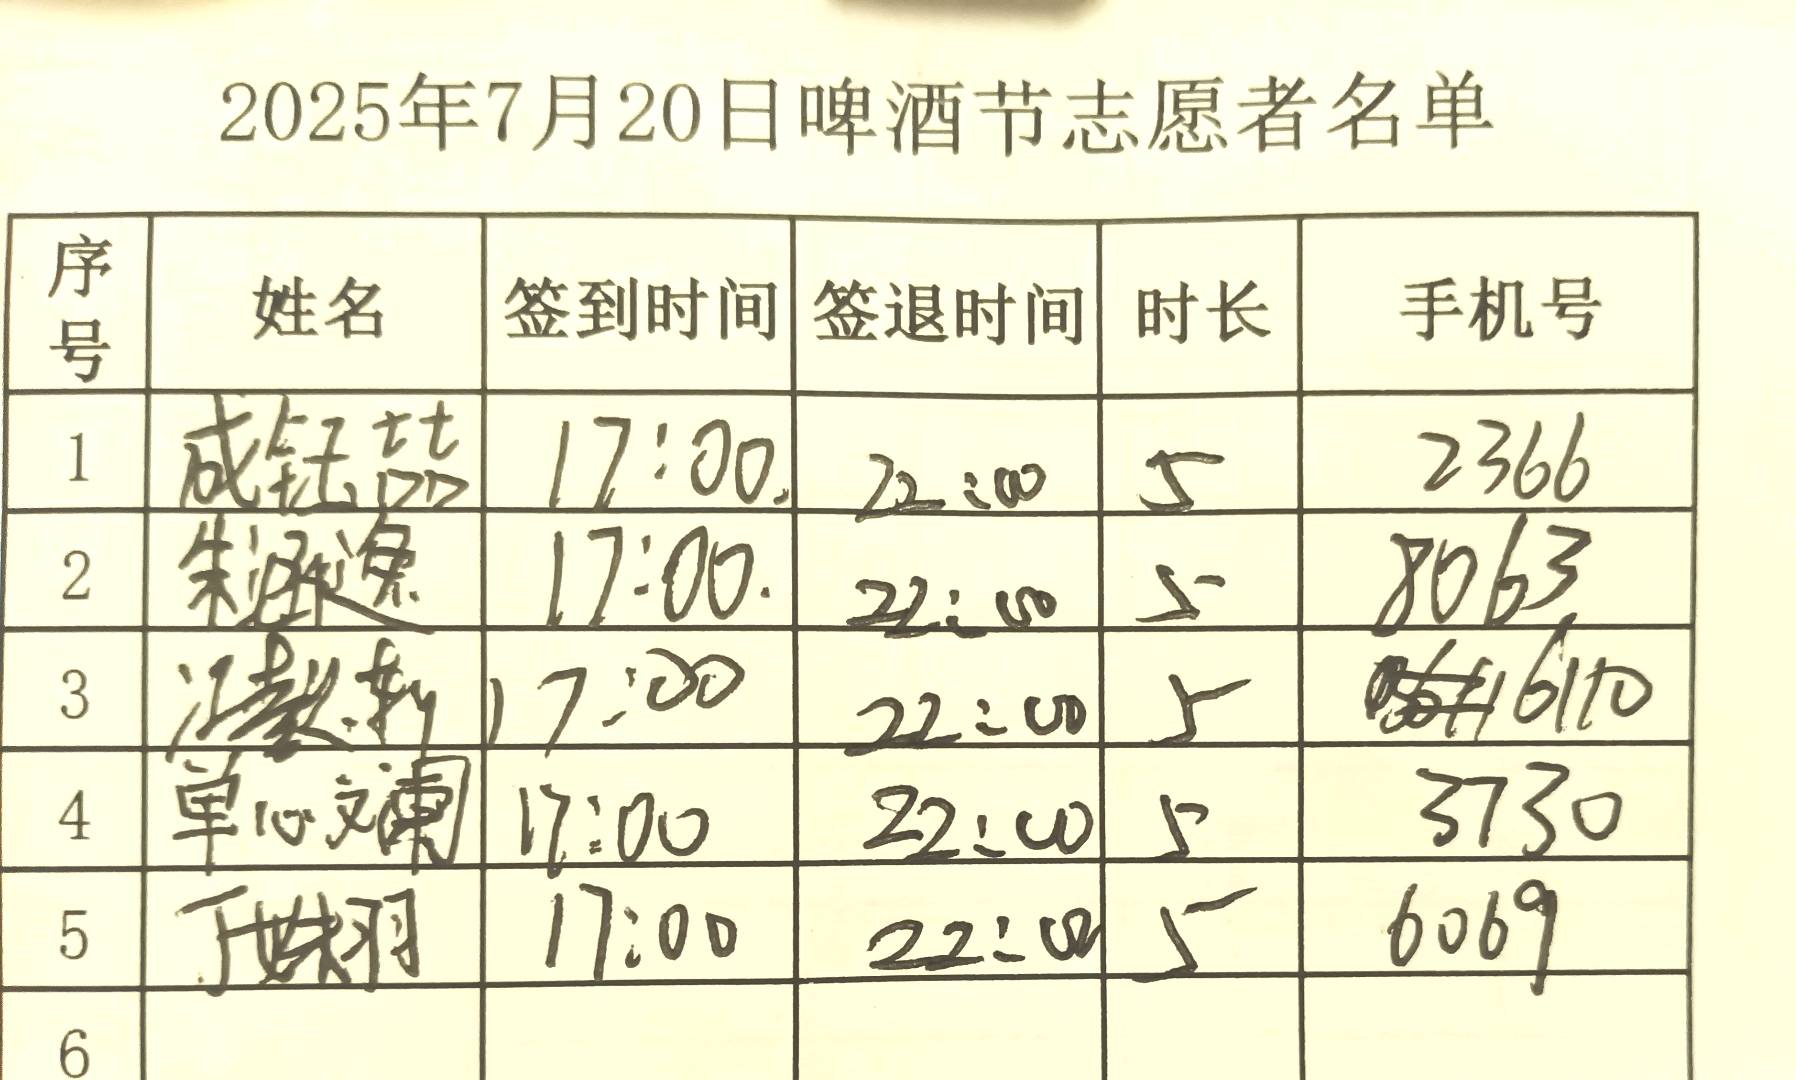 2025年7月20日啤酒节志愿者名单
序号 姓名 签到时间 签退时间 时长 手机号
1 成钰喆 17:00. 22:00 5 2366
2 朱涵逸 17:00. 22:00 5 8063
3 17:00 22:00 5 6110
4 单心斓 17:00 22:00 5 3730
5 丁姝羽 17:00 22:00 5 6069
6